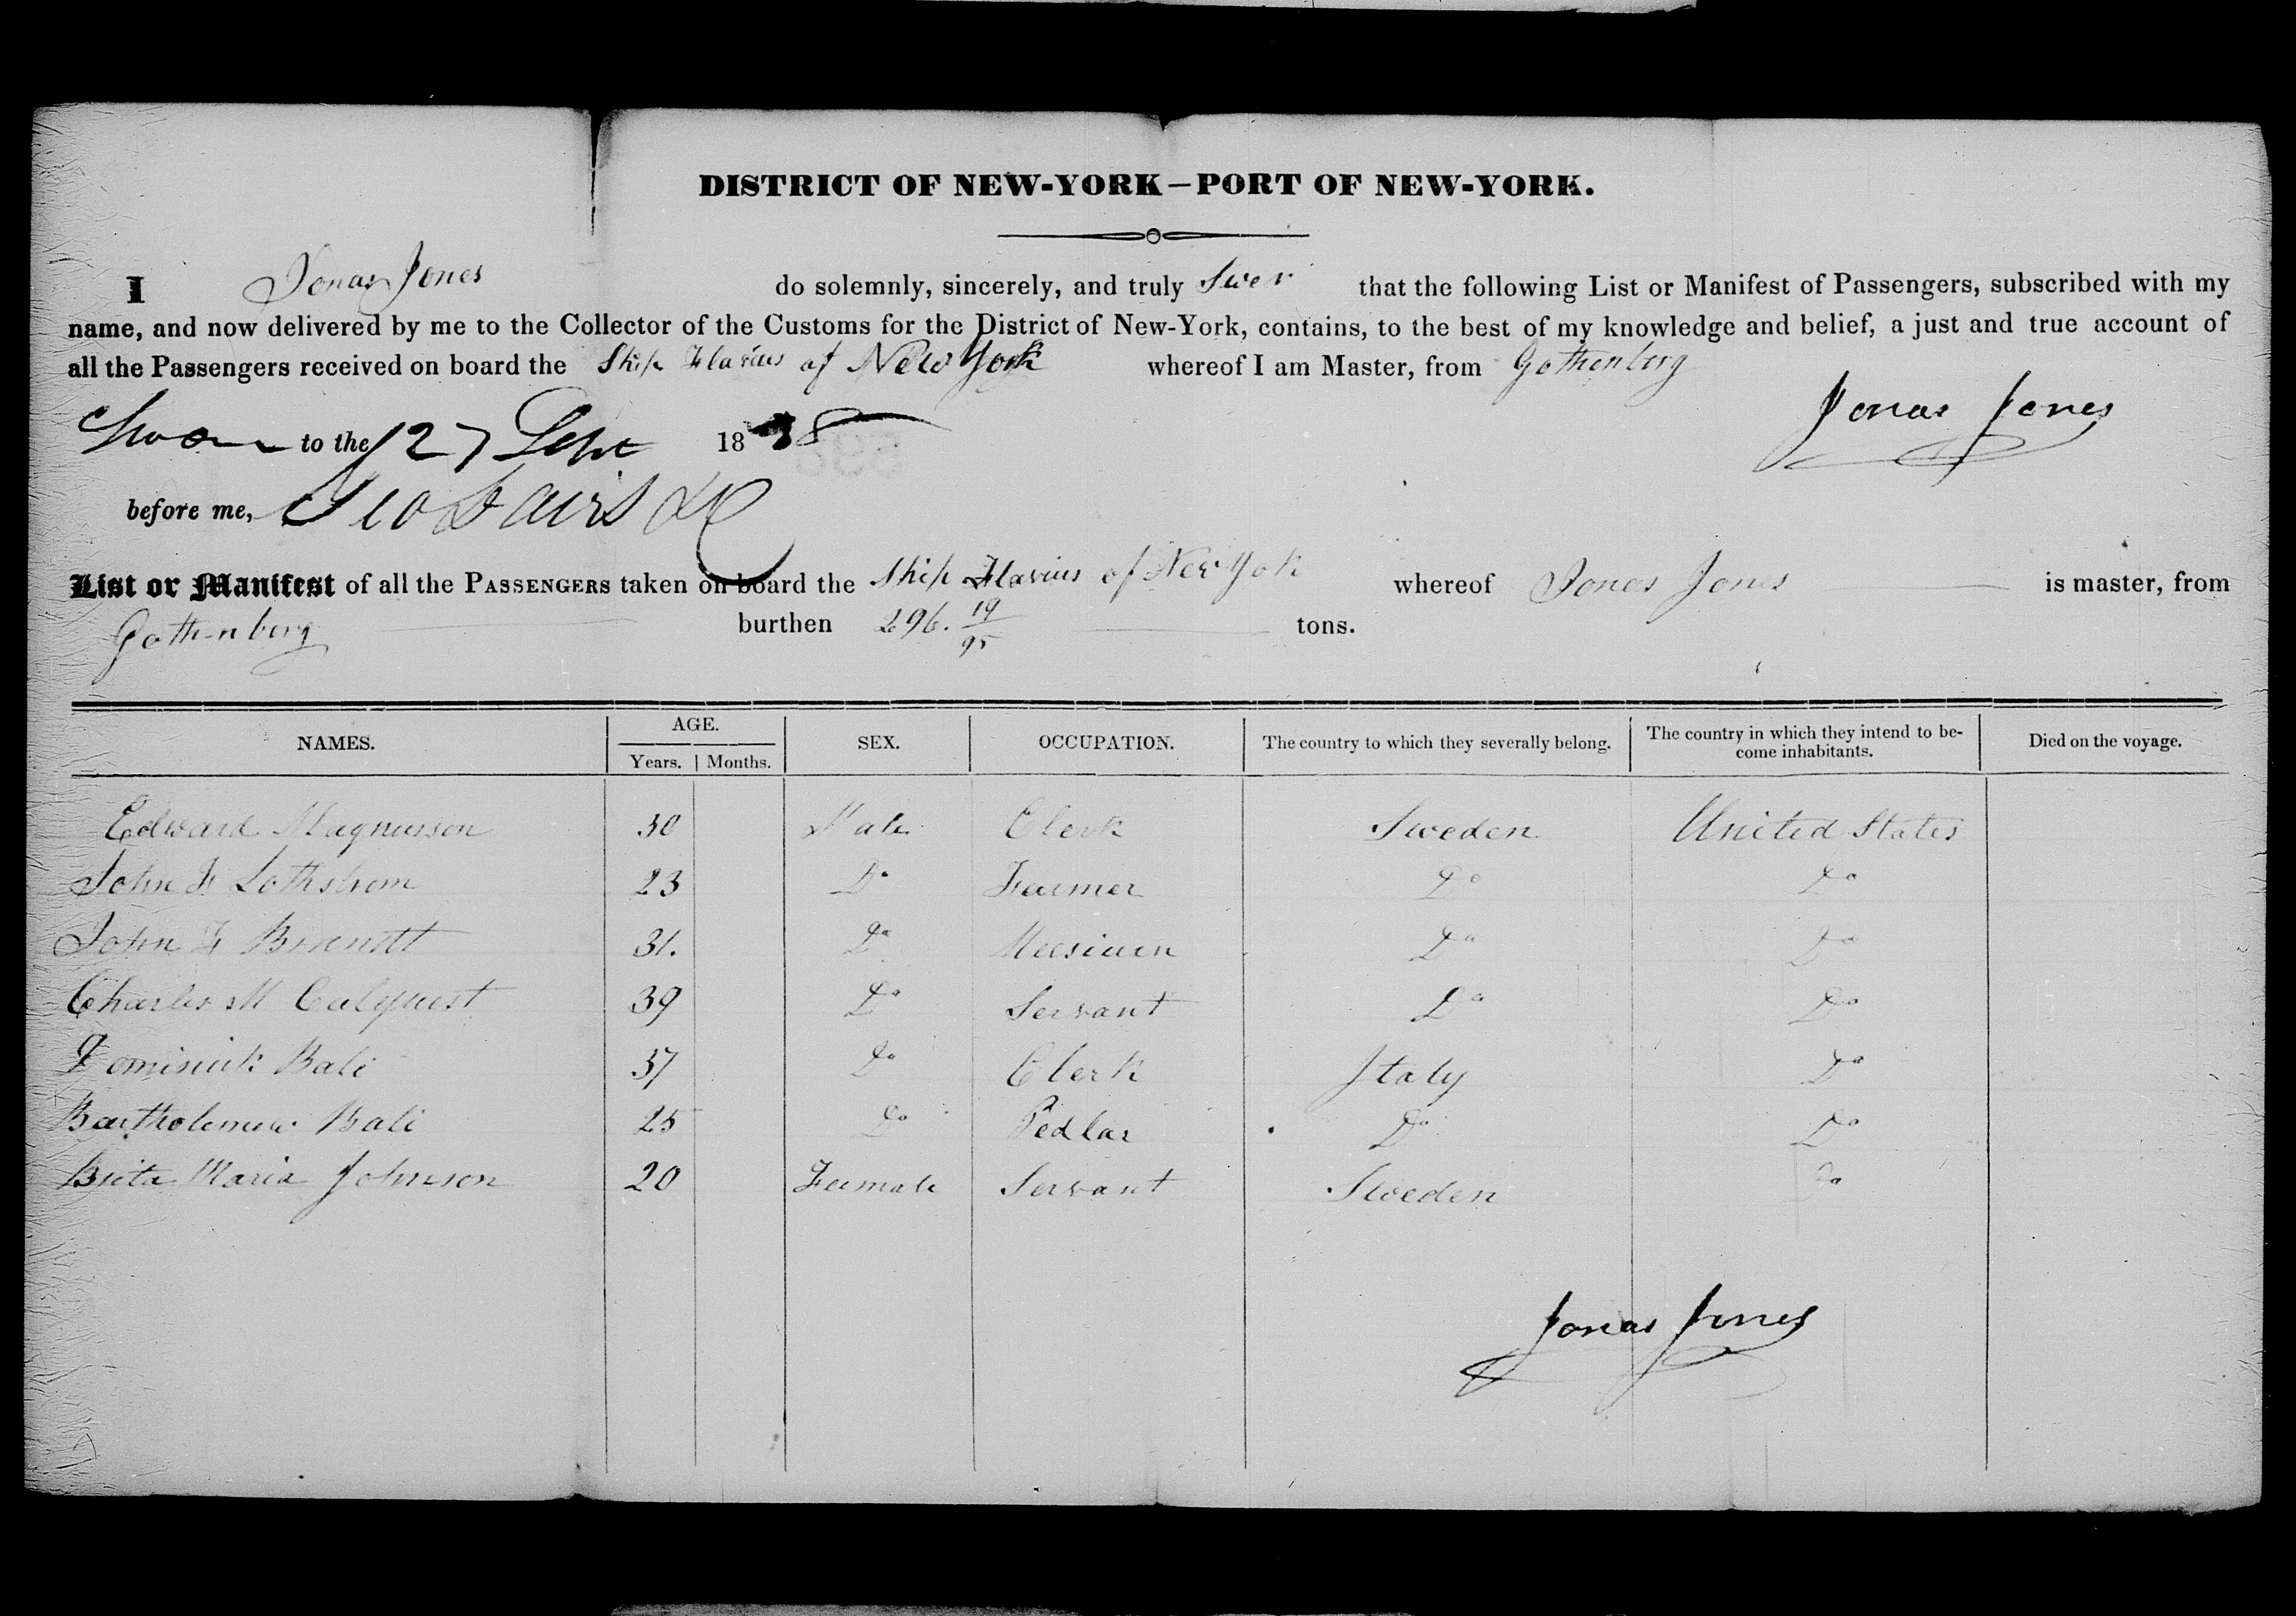 DISTRICT OF NEW-YORK—PORT OF NEW-YORK.
I Jonas Jones do solemnly, sincerely, and truly Swer that the following List or Manifest of Passengers, subscribed with my
name, and now delivered by me to the Collector of the Customs for the District of New-York, contains, to the best of my knowledge and belief, a just and true account of
all the Passengers received on board the Ship Flavius of New York whereof I am Master, from Gothenberg
Jonas Jones
Sworn to the 27 Sept 1838
before me, Geo
List or Manifest of all the PASSENGERS taken on board the Ship Flavius of New Yok whereof Jonas Jones is master, from
Gothenberg burthen 296. 19/95 tons.
NAMES. AGE. Years. Months. SEX. OCCUPATION. The country to which they severally belong. The country in which they intend to become inhabitants. Died on the voyage.
Edward Magnusson 30 Male Clerk Sweden United States
John F Lothstrom 23 Do Farmer Do Do
John F Brandt 31. Do Do Do
Charles M Calquist 39 Do Servant Do Do
Dominick Bali 37 Do Clerk Italy Do
Bartholomew Bali 25 Do Pedlar Do Do
Brita Maria Johnson 20 Female Servant Sweden Do
Jonas Jones